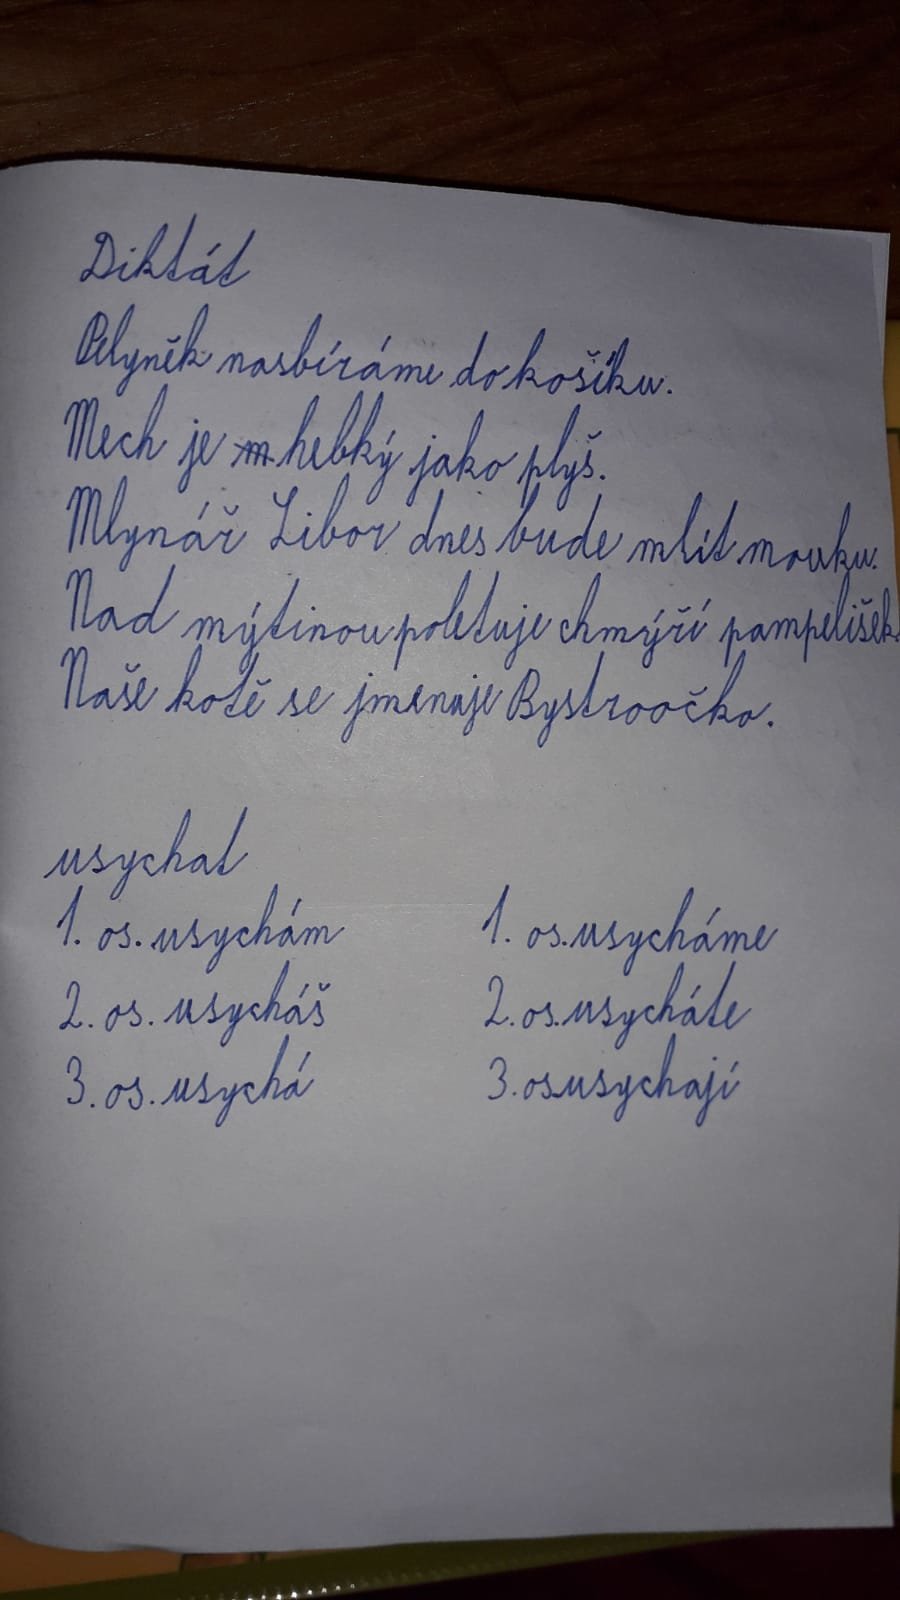 Diktát
Pelyněk nasbíráme do košíku.
Mech je hebký jako plyš.
Mlynář Libor dnes bude mlít mouku.
Nad mýtinou poletuje chmýří pampelišek.
Naše kotě se jmenuje Bystroočko.
usychat
1. os. usychám 1. os. usycháme
2. os. usycháš 2. os. usycháte
3. os. usychá 3. os. usychají